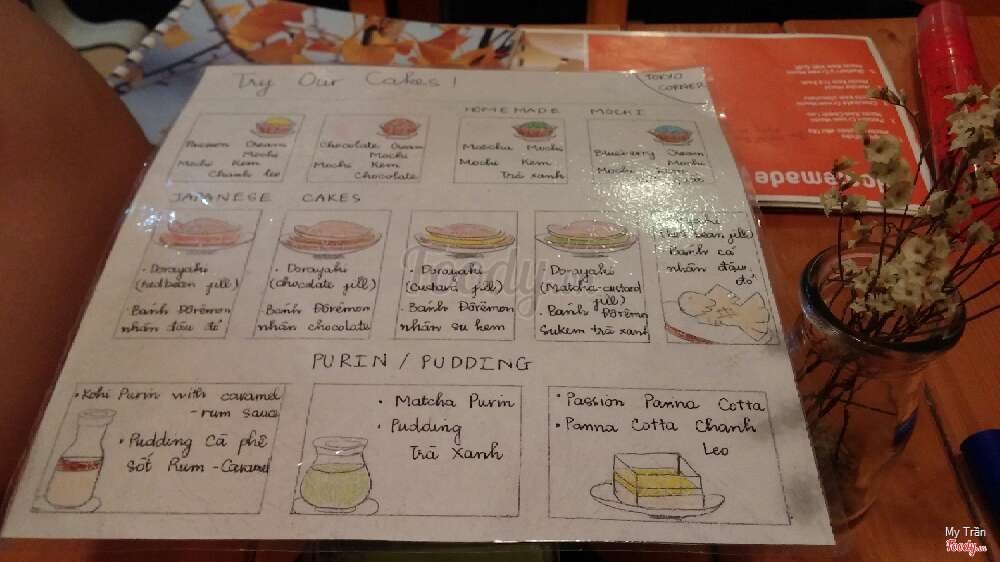 Try Our Cakes!
TOKYO
CORNER
HOMEMADE MOCHI
Passion Cream
Mochi
Mochi Kem
Chanh leo
Chocolate Cream
Mochi
Mochi Kem
Chocolate
Matcha Mochi
Mochi Kem
Trà xanh
Blueberry Cream
Mochi
Mochi
JAPANESE CAKES
• Dorayaki
(Redbean fill)
• Bánh Đôrêmon
nhân đậu đỏ
• Dorayaki
(chocolate fill)
• Bánh Đôrêmon
nhân chocolate
• Dorayaki
(Custard fill)
• Bánh Đôrêmon
nhân su kem
Dorayaki
(Matcha-custard
fill)
• Bánh Đôrêmon
Sukem trà xanh
(Red bean fill)
• Bánh cá
nhân đậu
đỏ
PURIN / PUDDING
• Kohi Purin with caramel
-rum sauce
• Pudding Cà phê
sốt Rum-Caramel
• Matcha Purin
• Pudding
Trà Xanh
• Passion Panna Cotta
• Panna Cotta Chanh
Leo
Homemade
Foody
My Trần
Foody.vn